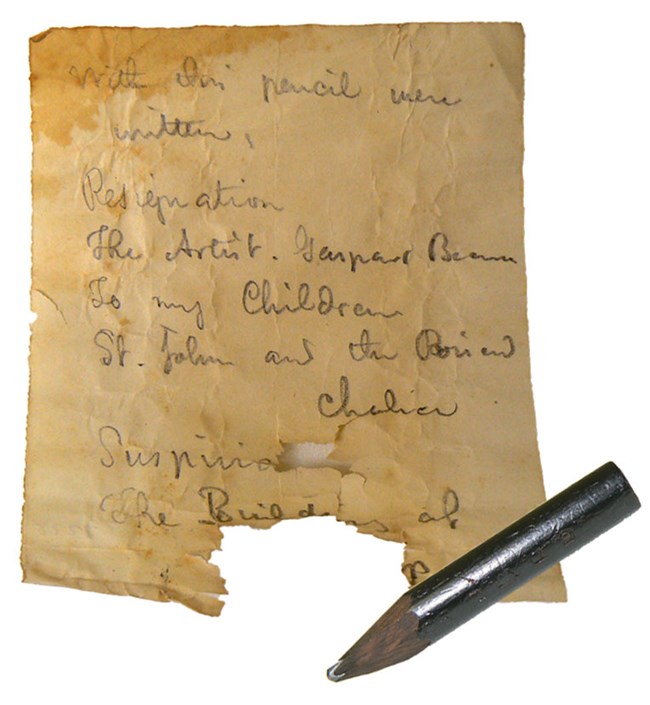 With this pencil were
written,
Resignation
The Artist. Gaspar Becerra
To my Children
St. John and the Poison'd
Chalice
Suspiria
The Building of